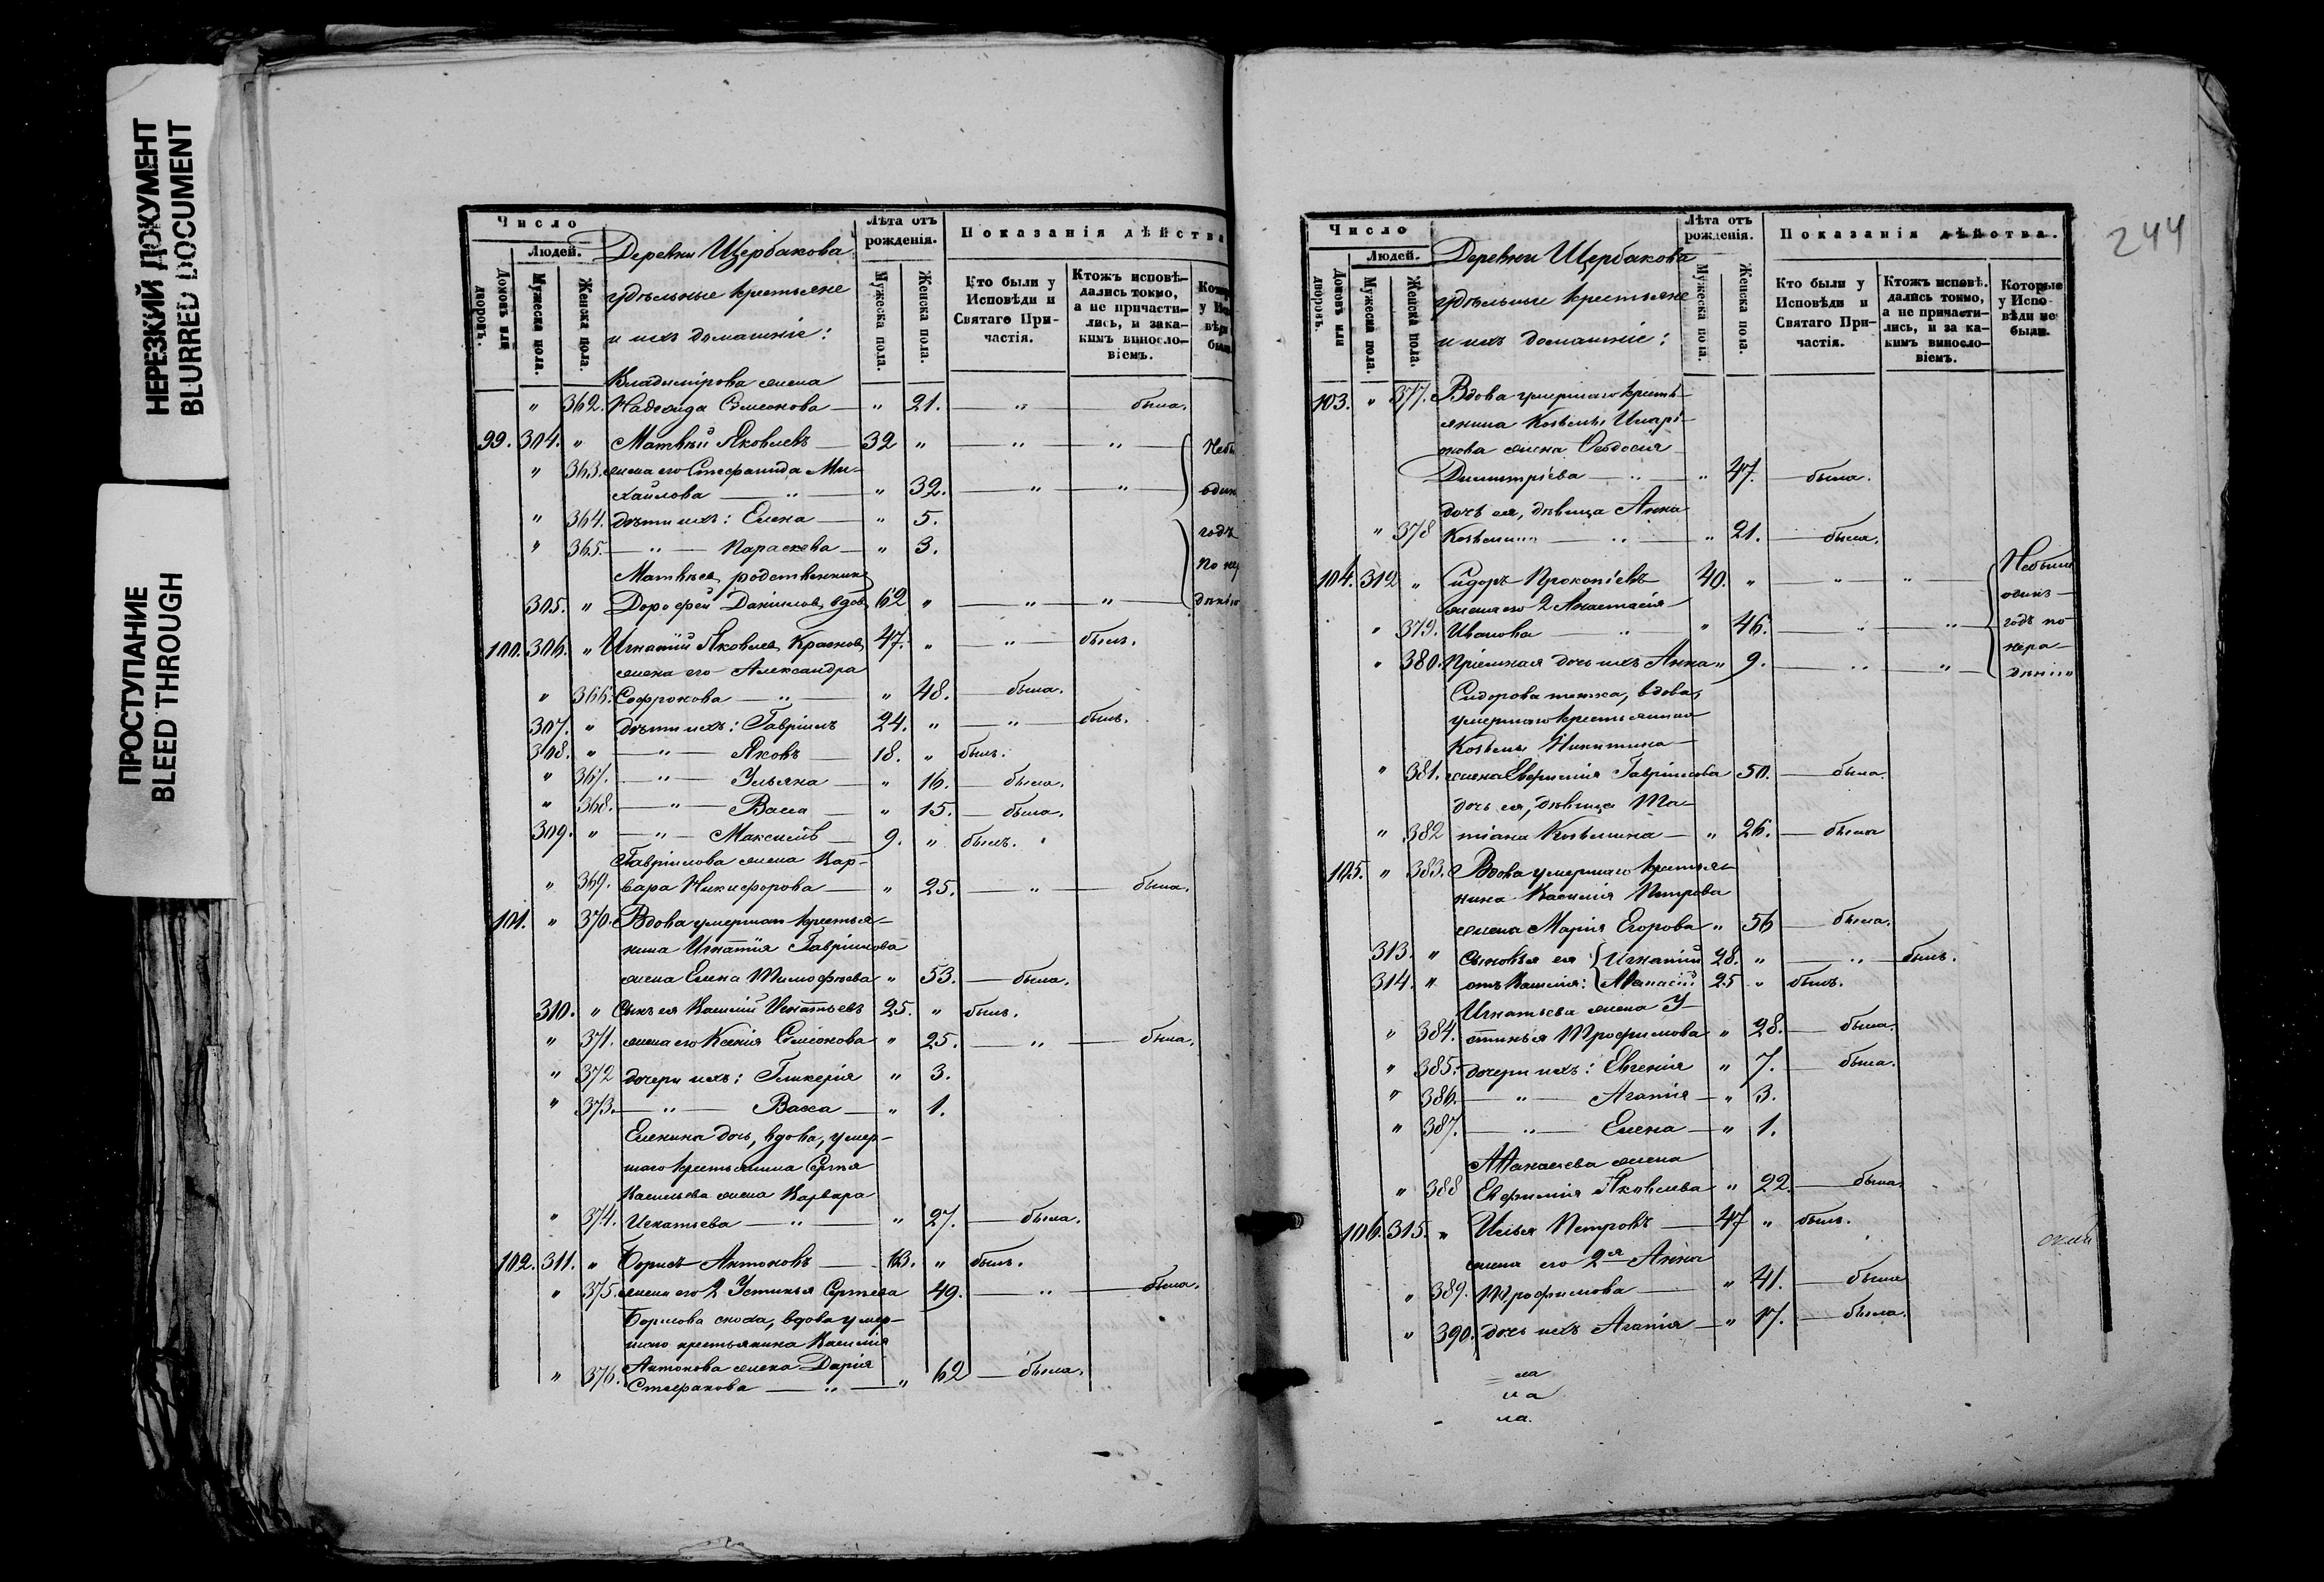 НЕРЕЗКИЙ ДОКУМЕНТ
BLURRED DOCUMENT
ПРОСТУПАНИЕ
BLEED THROUGH
Число
Людей.
Домовъ или дворовъ.
Мужеска пола.
Женска пола.
Деревни Щербакова
удѣльные крестьяне
и ихъ домашніе:
Лѣта отъ рожденія.
Мужеска пола.
Женска пола.
Показанія дѣйства
Кто были у Исповѣди и Святаго При-частія.
Ктожъ исповѣ-дались токмо, а не причасти-лись, и зака-кимъ винослο-віемъ.
Владимірова жена
" 362. Надежда Симеонова — " 21. — " — была.
99. 304. " Матвѣй Яковлевъ — 32 " — " — " — Небы
" 363. жена его Стефанида Ми-
хайлова — " — " 32. — " — " — один
" 364. дѣти ихъ: Елена — " 5.
" 365. — " — Параскева — " 3. годъ
Матвѣева родственникъ По не
305. " Дорофей Даниловъ, вдовъ 62 " — " — " — дѣнію
100. 306. " Игнатій Яковлевъ Красновъ 47. " — " — былъ.
жена его Александра
" 366. Софронова — " — " 48. — была.
307. " дѣти ихъ: Гавріилъ 24. " — " — былъ.
308. " — " — Яковъ — 18. " былъ.
" 367. — " — Ульяна — " 16. — была.
" 368. — " — Васса — " 15. — была.
309. " — " — Максимъ — 9. " былъ.
Гавріилова жена Вар-
" 369. вара Никифорова — " 25. — " — была.
101. " 370. Вдова умершаго крестья-
нина Игнатія Гавріилова
жена Елена Тимофѣева " 53. — была.
310. " Сынъ ея Василій Игнатьевъ 25. " былъ.
" 371. жена его Ксенія Симеонова " 25. — " — была.
" 372 дочери ихъ: Гликерія " 3.
" 373. — " — Васса — " 1.
Еленина дочь, вдова, умер-
шаго крестьянина Сергѣя
Васильева жена Варвара
" 374. Игнатьева — " — " 27. — была.
102. 311. " Борисъ Антоновъ — 63. " былъ.
" 375. жена его 2 Устинья Сергѣева 49. — " — была.
Борисова сноха, вдова умер-
шаго крестьянина Василія
Антонова жена Дарія
" 376. Стефанова — " — " 62 — была.
244
Число
Людей.
Домовъ или дворовъ.
Мужеска пола.
Женска пола.
Деревни Щербакова
удѣльные крестьяне
и ихъ домашніе:
Лѣта отъ рожденія.
Мужеска пола.
Женска пола.
Показанія дѣйства.
Кто были у Исповѣди и Святаго При-частія.
Ктожъ исповѣ. дались токмо, а не причасти-лись, и за ка-кимъ винослο-віемъ.
Которые у Испо-вѣди не были.
103. " 377. Вдова умершаго кресть-
янина Козьмы Илларі-
онова жена Ѳеодосія
Димитріева — " — " 47. — была.
дочь ея, дѣвица Анна
" 378 Козьмина — " — " 21. — была.
104. 312 " Сидоръ Прокопіевъ 40. " " " Небыли
жена его 2 Анастасія одинъ
" 379. Иванова — " — " 46. — " — " — годъ по
" 380. Пріемная дочь ихъ Анна " 9. — " — " — нера-
дѣнію
Сидорова тетка, вдова,
умершаго крестьянина
Козьмы Никитина
" 381. жена Евфимія Гавріилова 50. — была.
дочь ея, дѣвица Та-
" 382 тіана Козьмина — " 26. — была
105. " 383. Вдова умершаго крестья-
нина Василія Петрова
жена Марія Егорова " 56 — была.
313. " Сыновья ея Игнатій 28. " — " — былъ.
314. " отъ Василія: Аѳанасій 25 " былъ.
Игнатьева жена У-
" 384. стинья Трофимова " 28. — была.
" 385. дочери ихъ: Евгенія " 7. — была.
" 386. — " — Агапія — " 3.
" 387. — " — Елена — " 1.
Аѳанасьева жена
" 388 Евфимія Яковлева " 22. — была.
106. 315. " Илья Петровъ — 47 " былъ.
жена его 2я Анна
" 389. Трофимова — " 41. — была
" 390. дочь ихъ Агапія — " 17. — была.
ла
ла
ла.